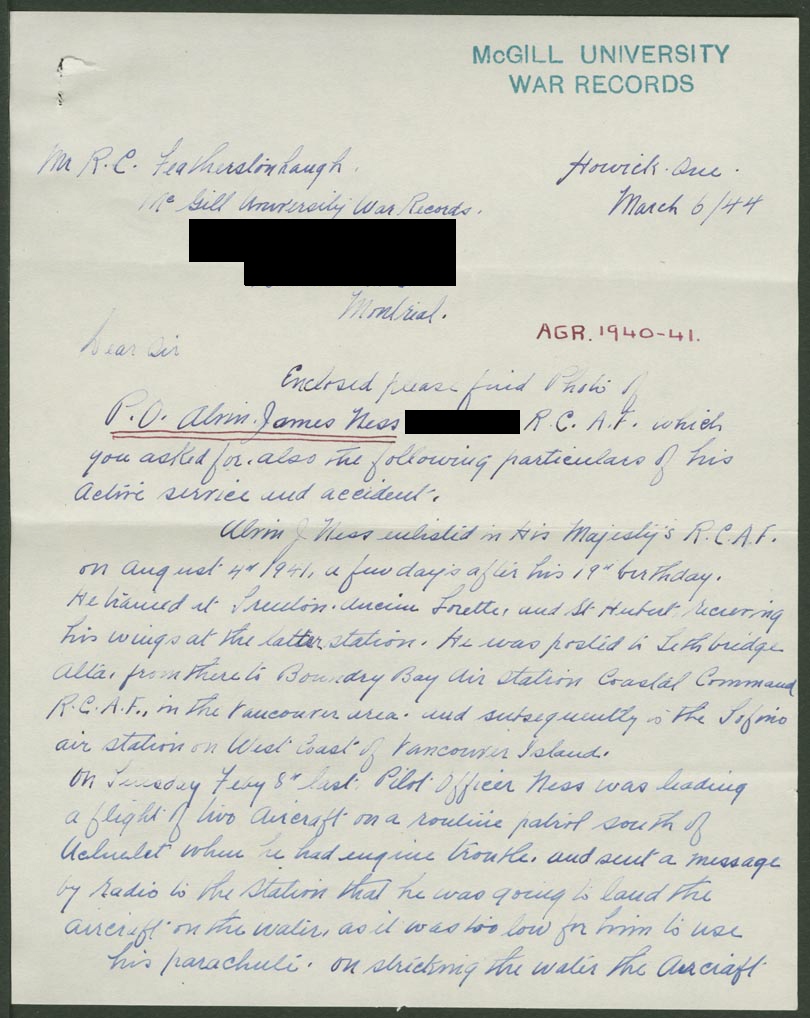 McGILL UNIVERSITY
WAR RECORDS
Mr R.C. Featherstonhaugh.
Howick. Que.
Mc Gill University War Records.
March 6/44
Montreal.
AGR. 1940-41.
Dear Sir
Enclosed please find Photo of
P.O. Alvin James Ness R.C.A.F. which
you asked for. also the following particulars of his
Active service and accident.
Alvin J Ness enlisted in His Majesty's R.C.A.F.
on August 4th 1941, a few day's after his 19th birthday.
He trained at Trenton. Ancien Lorette, and St Hubert, recieving
his wings at the latter station. He was posted to Lethbridge
Alta. from there to Boundry Bay Air station Coastal Command
R.C.A.F., in the Vancouver area. and subsequently to the Tofino
air station on West Coast of Vancouver Island.
On Tuesday Feby 8th last. Pilot Officer Ness was leading
a flight of two Aircraft on a routine patrol south of
when he had engine trouble. and sent a message
by radio to the station that he was going to land the
aircraft on the water, as it was too low for him to use
his parachute. on stricking the water the Aircraft